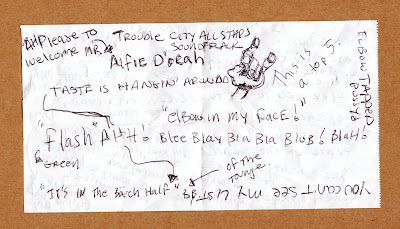 Please to
welcome Mr.
TROUBLE CITY ALLSTARS
SOUNDTRACK
Alfie D'Ceah
This is
a top 5.
ELBOW TAPPED
TASTE IS HANGIN' AROUND
"elbow in my face!"
"Flash" AHH! Blee Blay Bla Bla Blub! Blah!
GREEN
of the
"It's in the Bach Half"
YOU CAN'T SEE MY LIST